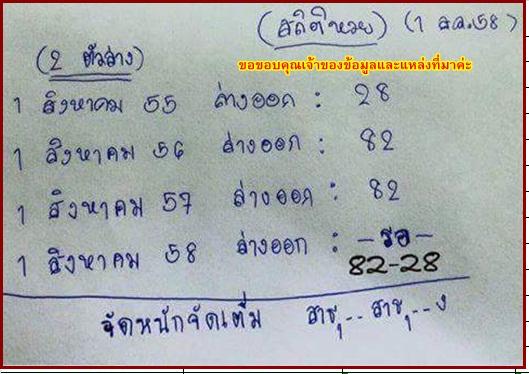 (สถิติหวย) (1 ส.ค.58)
(2 ตัวล่าง)
ขอขอบคุณเจ้าของข้อมูลและแหล่งที่มาค่ะ
1 สิงหาคม 55 ล่างออก : 28
1 สิงหาคม 56 ล่างออก : 82
1 สิงหาคม 57 ล่างออก : 82
1 สิงหาคม 58 ล่างออก : -รอ-
82-28
จัดหนักจัดเต็ม สาธุ.. สาธุ...ๆ